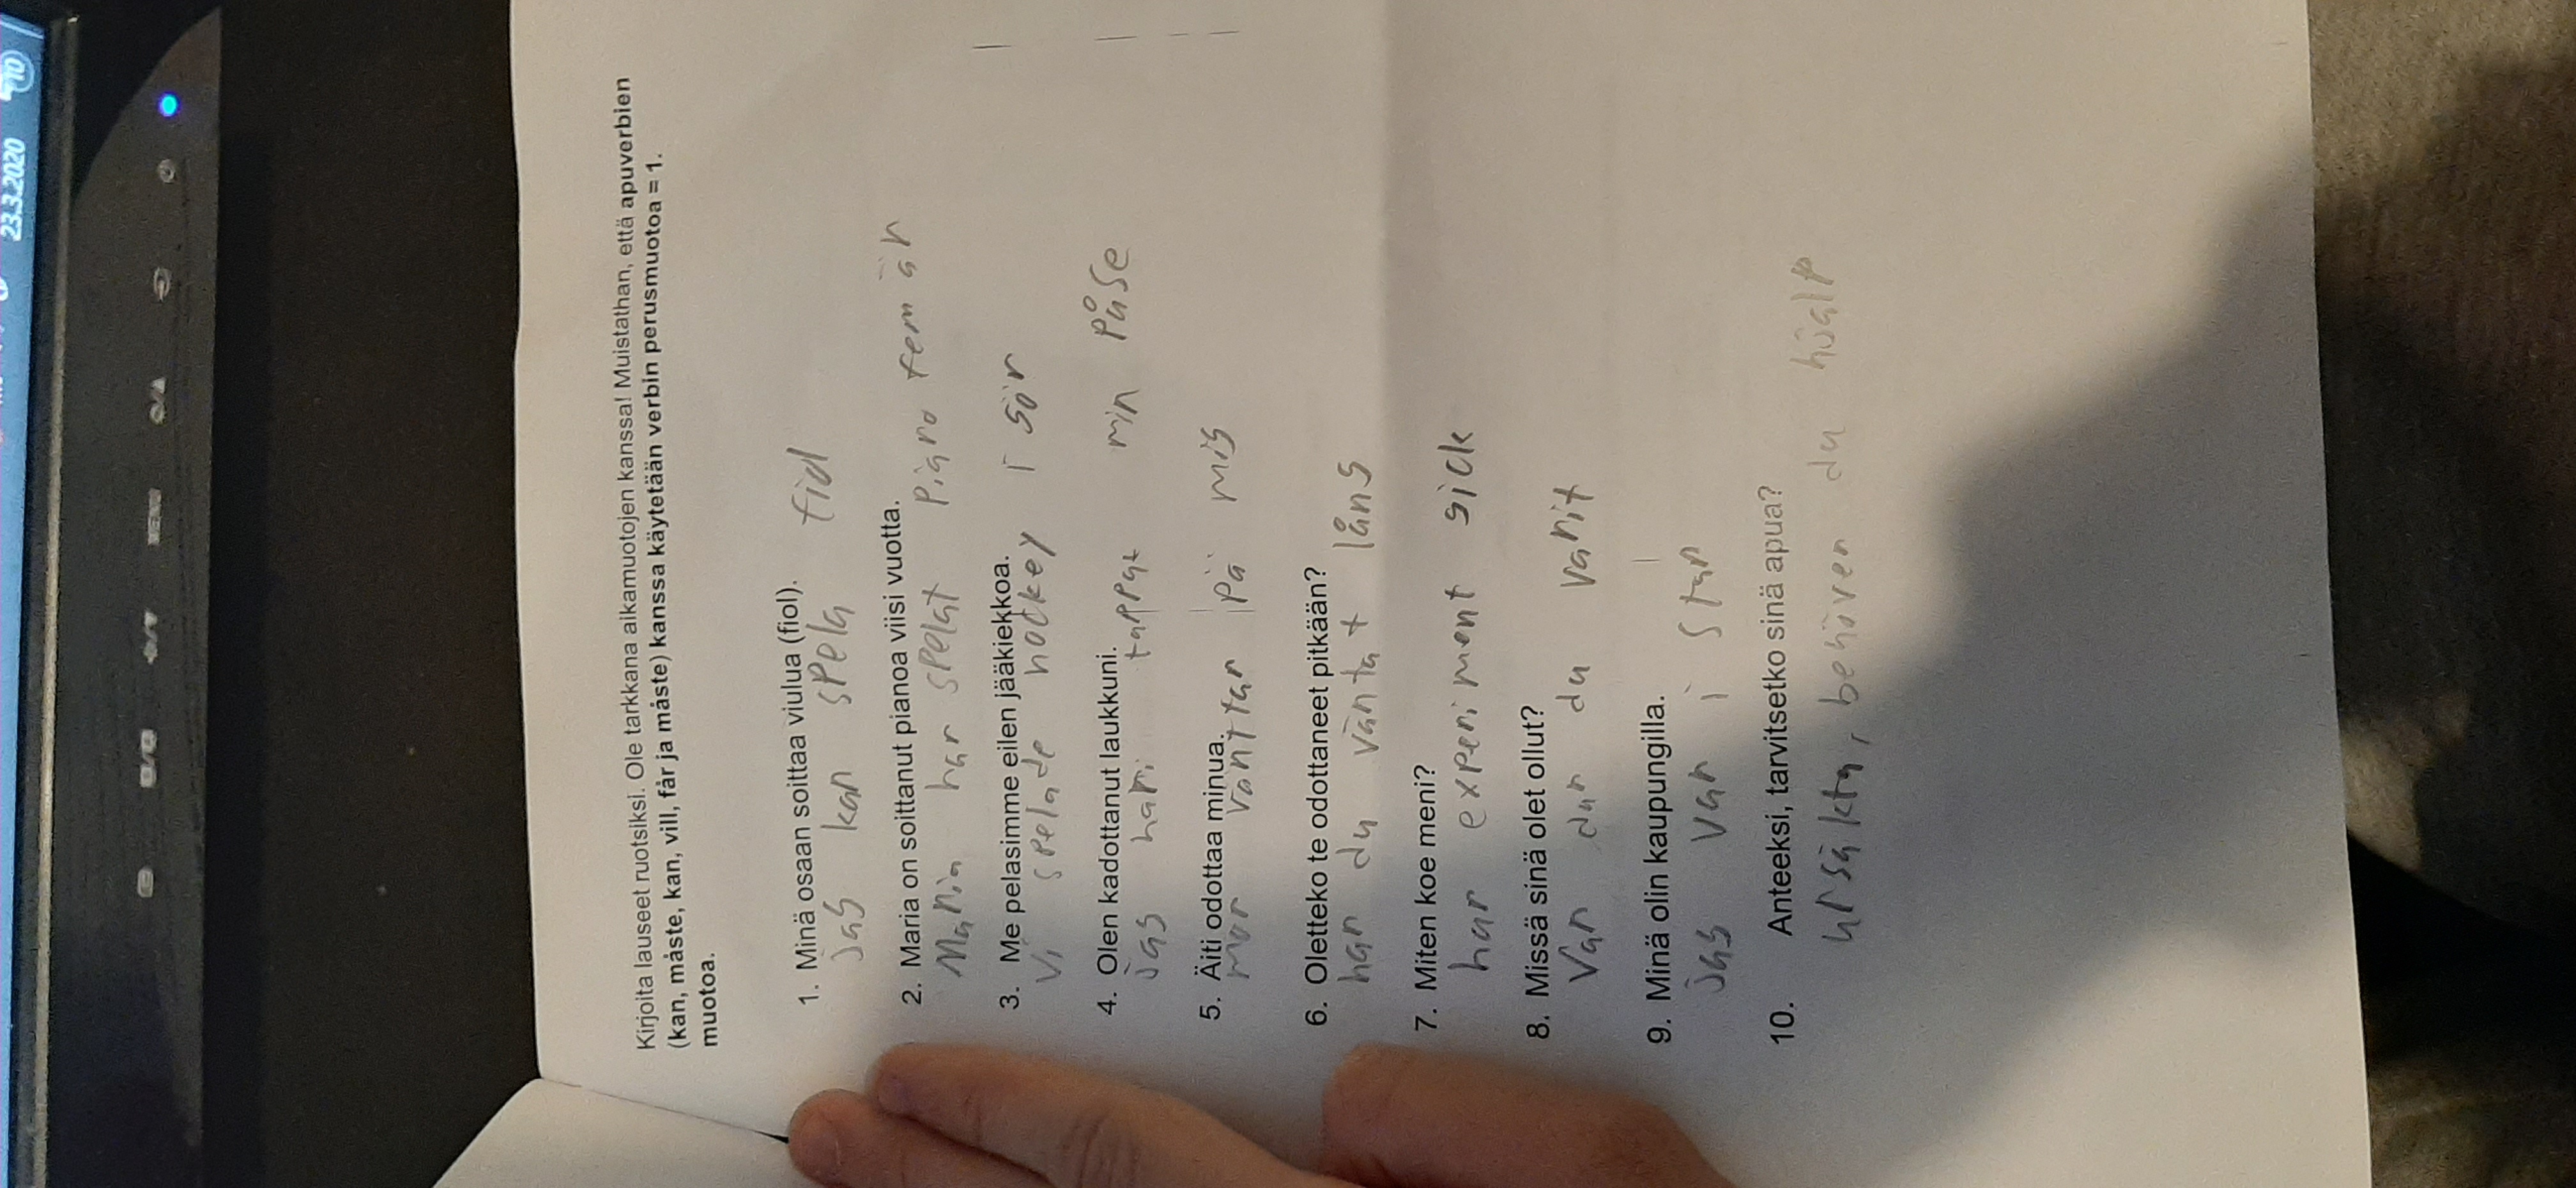 23.3.2020
Kirjoita lauseet ruotsiksi. Ole tarkkana aikamuotojen kanssa! Muistathan, että apuverbien
(kan, måste, kan, vill, får ja måste) kanssa käytetään verbin perusmuotoa = 1.
muotoa.
1. Minä osaan soittaa viulua (fiol).
jag kan spela fiol
2. Maria on soittanut pianoa viisi vuotta.
Maria har spelat piano fem är
3. Me pelasimme eilen jääkiekkoa.
Vi spelade hockey i gör
4. Olen kadottanut laukkuni.
jag har tappat min påse
5. Äiti odottaa minua.
mor väntar på mig
6. Oletteko te odottaneet pitkään?
har du väntat lång
7. Miten koe meni?
hur experiment gick
8. Missä sinä olet ollut?
Var dar du varit
9. Minä olin kaupungilla.
jag var i stan
10. Anteeksi, tarvitsetko sinä apua?
ursäkta, behöver du hjälp